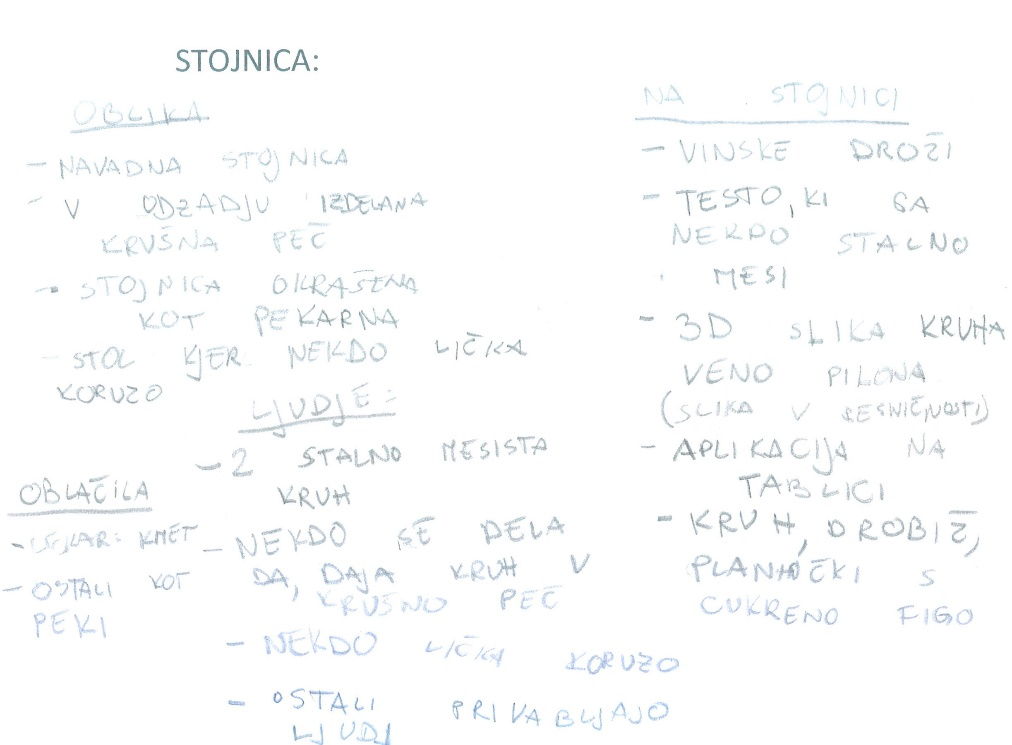 STOJNICA:
OBLIKA
- NAVADNA STOJNICA
- V ODZADJU IZDELANA
KRUŠNA PEČ
- STOJNICA OKRAŠENA
KOT PEKARNA
- STOL KJER NEKDO LIČKA
KORUZO
LJUDJE:
- 2 STALNO MESISTA
KRUH
- NEKDO SE DELA
DA, DAJA KRUH V
KRUŠNO PEČ
- NEKDO LIČKA KORUZO
- OSTALI PRIVABLJAJO
LJUDI
OBLAČILA
- KMET
- OSTALI KOT
PEKI
NA STOJNICI
- VINSKE DROŽI
- TESTO, KI GA
NEKDO STALNO
MESI
- 3D SLIKA KRUHA
VENO PILONA
(SLIKA V RESNIČNOSTI)
- APLIKACIJA NA
TABLICI
- KRUH, DROBIŽ,
S
CUKRENO FIGO